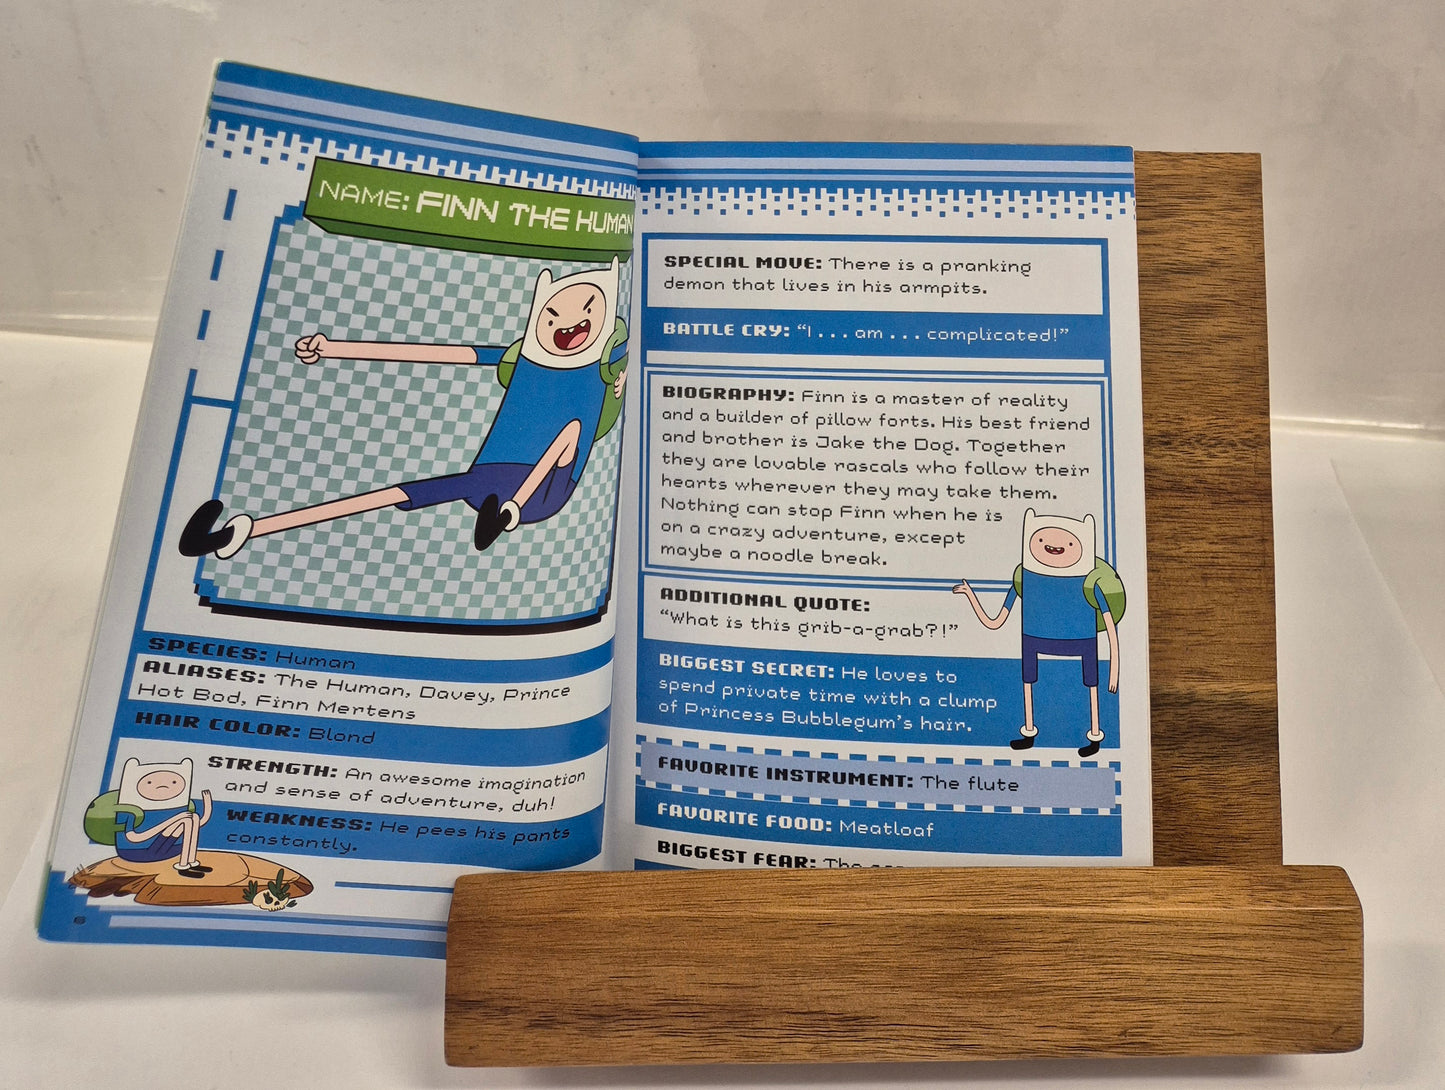 NAME: FINN THE HUMAN
SPECIES: Human
ALIASES: The Human, Davey, Prince
Hot Bod, Finn Mertens
HAIR COLOR: Blond
STRENGTH: An awesome imagination
and sense of adventure, duh!
WEAKNESS: He pees his pants
constantly.
6
SPECIAL MOVE: There is a pranking
demon that lives in his armpits.
BATTLE CRY: “I . . . am . . . complicated!”
BIOGRAPHY: Finn is a master of reality
and a builder of pillow forts. His best friend
and brother is Jake the Dog. Together
they are lovable rascals who follow their
hearts wherever they may take them.
Nothing can stop Finn when he is
on a crazy adventure, except
maybe a noodle break.
ADDITIONAL QUOTE:
“What is this grib-a-grab?!”
BIGGEST SECRET: He loves to
spend private time with a clump
of Princess Bubblegum’s hair.
FAVORITE INSTRUMENT: The flute
FAVORITE FOOD: Meatloaf
BIGGEST FEAR: The